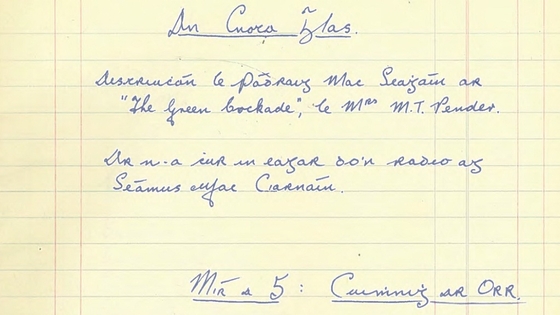 An Cnota Glas.
Aistriúcán le Pádraig Mac Seagáin ar
"The Green Cockade", le Mrs M.T. Pender.
Ar n-a cur in eagar do'n radio ag
Séamus Mac Ciarnáin.
Mír a 5 : Cuimnig ar Orr.